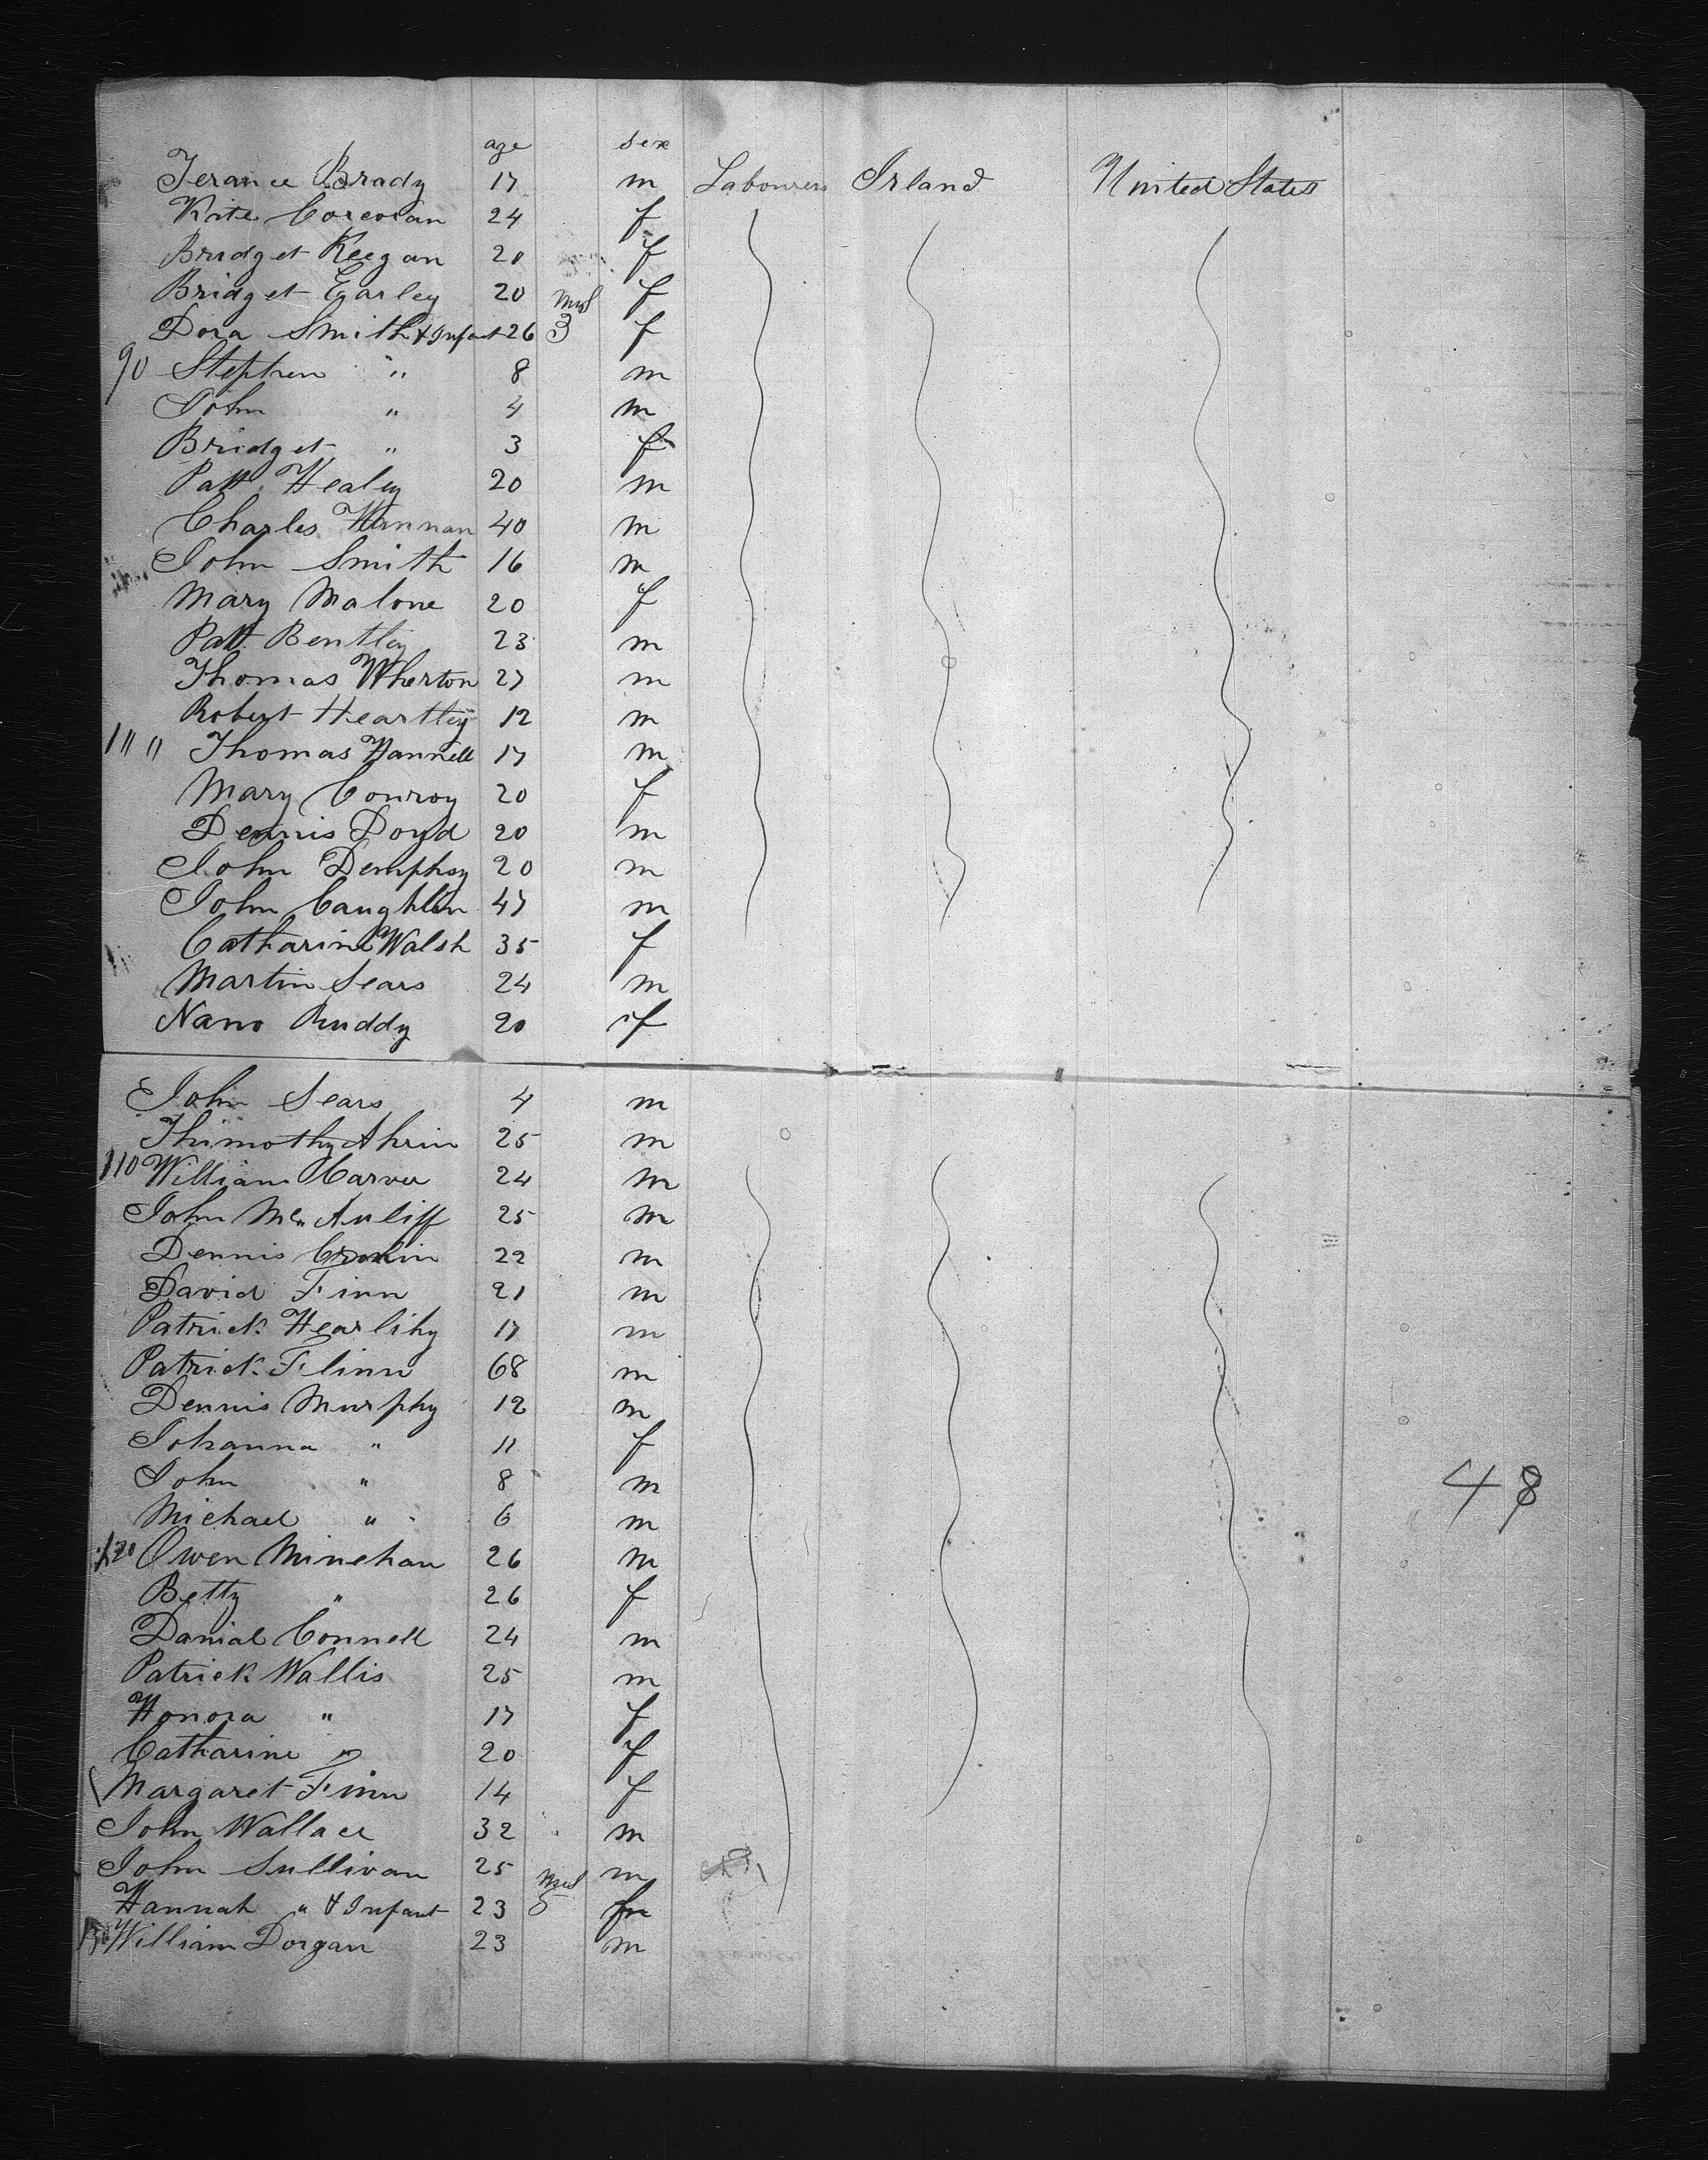 age sex
Terance Brady 17 m Labourers Irland United States
Kate Corcoran 24 f
Bridget Keegan 20 f
Bridget Earley 20 f
Dora Smith & Infant 26 mos 3 f
90 Stephen " 8 m
John " 4 m
Bridget " 3 f
Patt Healey 20 m
Charles Hannan 40 m
John Smith 16 m
Mary Malone 20 f
Patt Bentley 23 m
Thomas Wherton 27 m
Robert Heartley 12 m
1" " Thomas Hannell 17 m
Mary Conroy 20 f
Dennis Doyd 20 m
John Demphsy 20 m
John Caughlin 47 m
Catharine Walsh 35 f
Martin Sears 24 m
Nano Ruddy 20 f
John Sears 4 m
Thimothy Ahrin 25 m
110 William Carver 24 m
John Mc Auliff 25 m
Dennis Cronin 22 m
David Finn 21 m
Patrick Hearlihy 17 m
Patrick Flinn 68 m
Dennis Murphy 12 m
Johanna " 11 f
John " 8 m
Michael " 6 m
48
120 Owen Minehan 26 m
Betty " 26 f
Danial Connell 24 m
Patrick Wallis 25 m
Honora " 17 f
Catharine " 20 f
Margaret Finn 14 f
John Wallace 32 m
John Sullivan 25 m
Hannah " & Infant 23 mos 5 f
130 William Dorgan 23 m